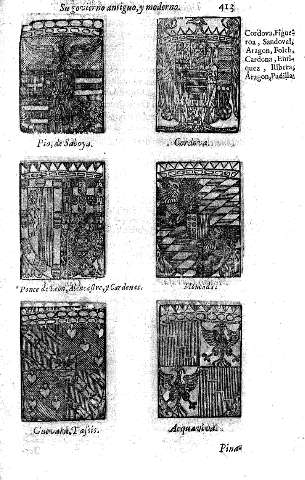 Su govierno antiguo, y moderno. 413
Cordova, Figue-
roa, Sandovel,
Aragon, Folch,
Cardona, Enri-
quez, Ribera,
Aragon, Padilla.
Pio, de Saboya.
Cordova.
Ponce de Leon, Alencastre, y Cardenes.
Moncada.
Guevara, Tassis.
Acquaviva.
Pina-